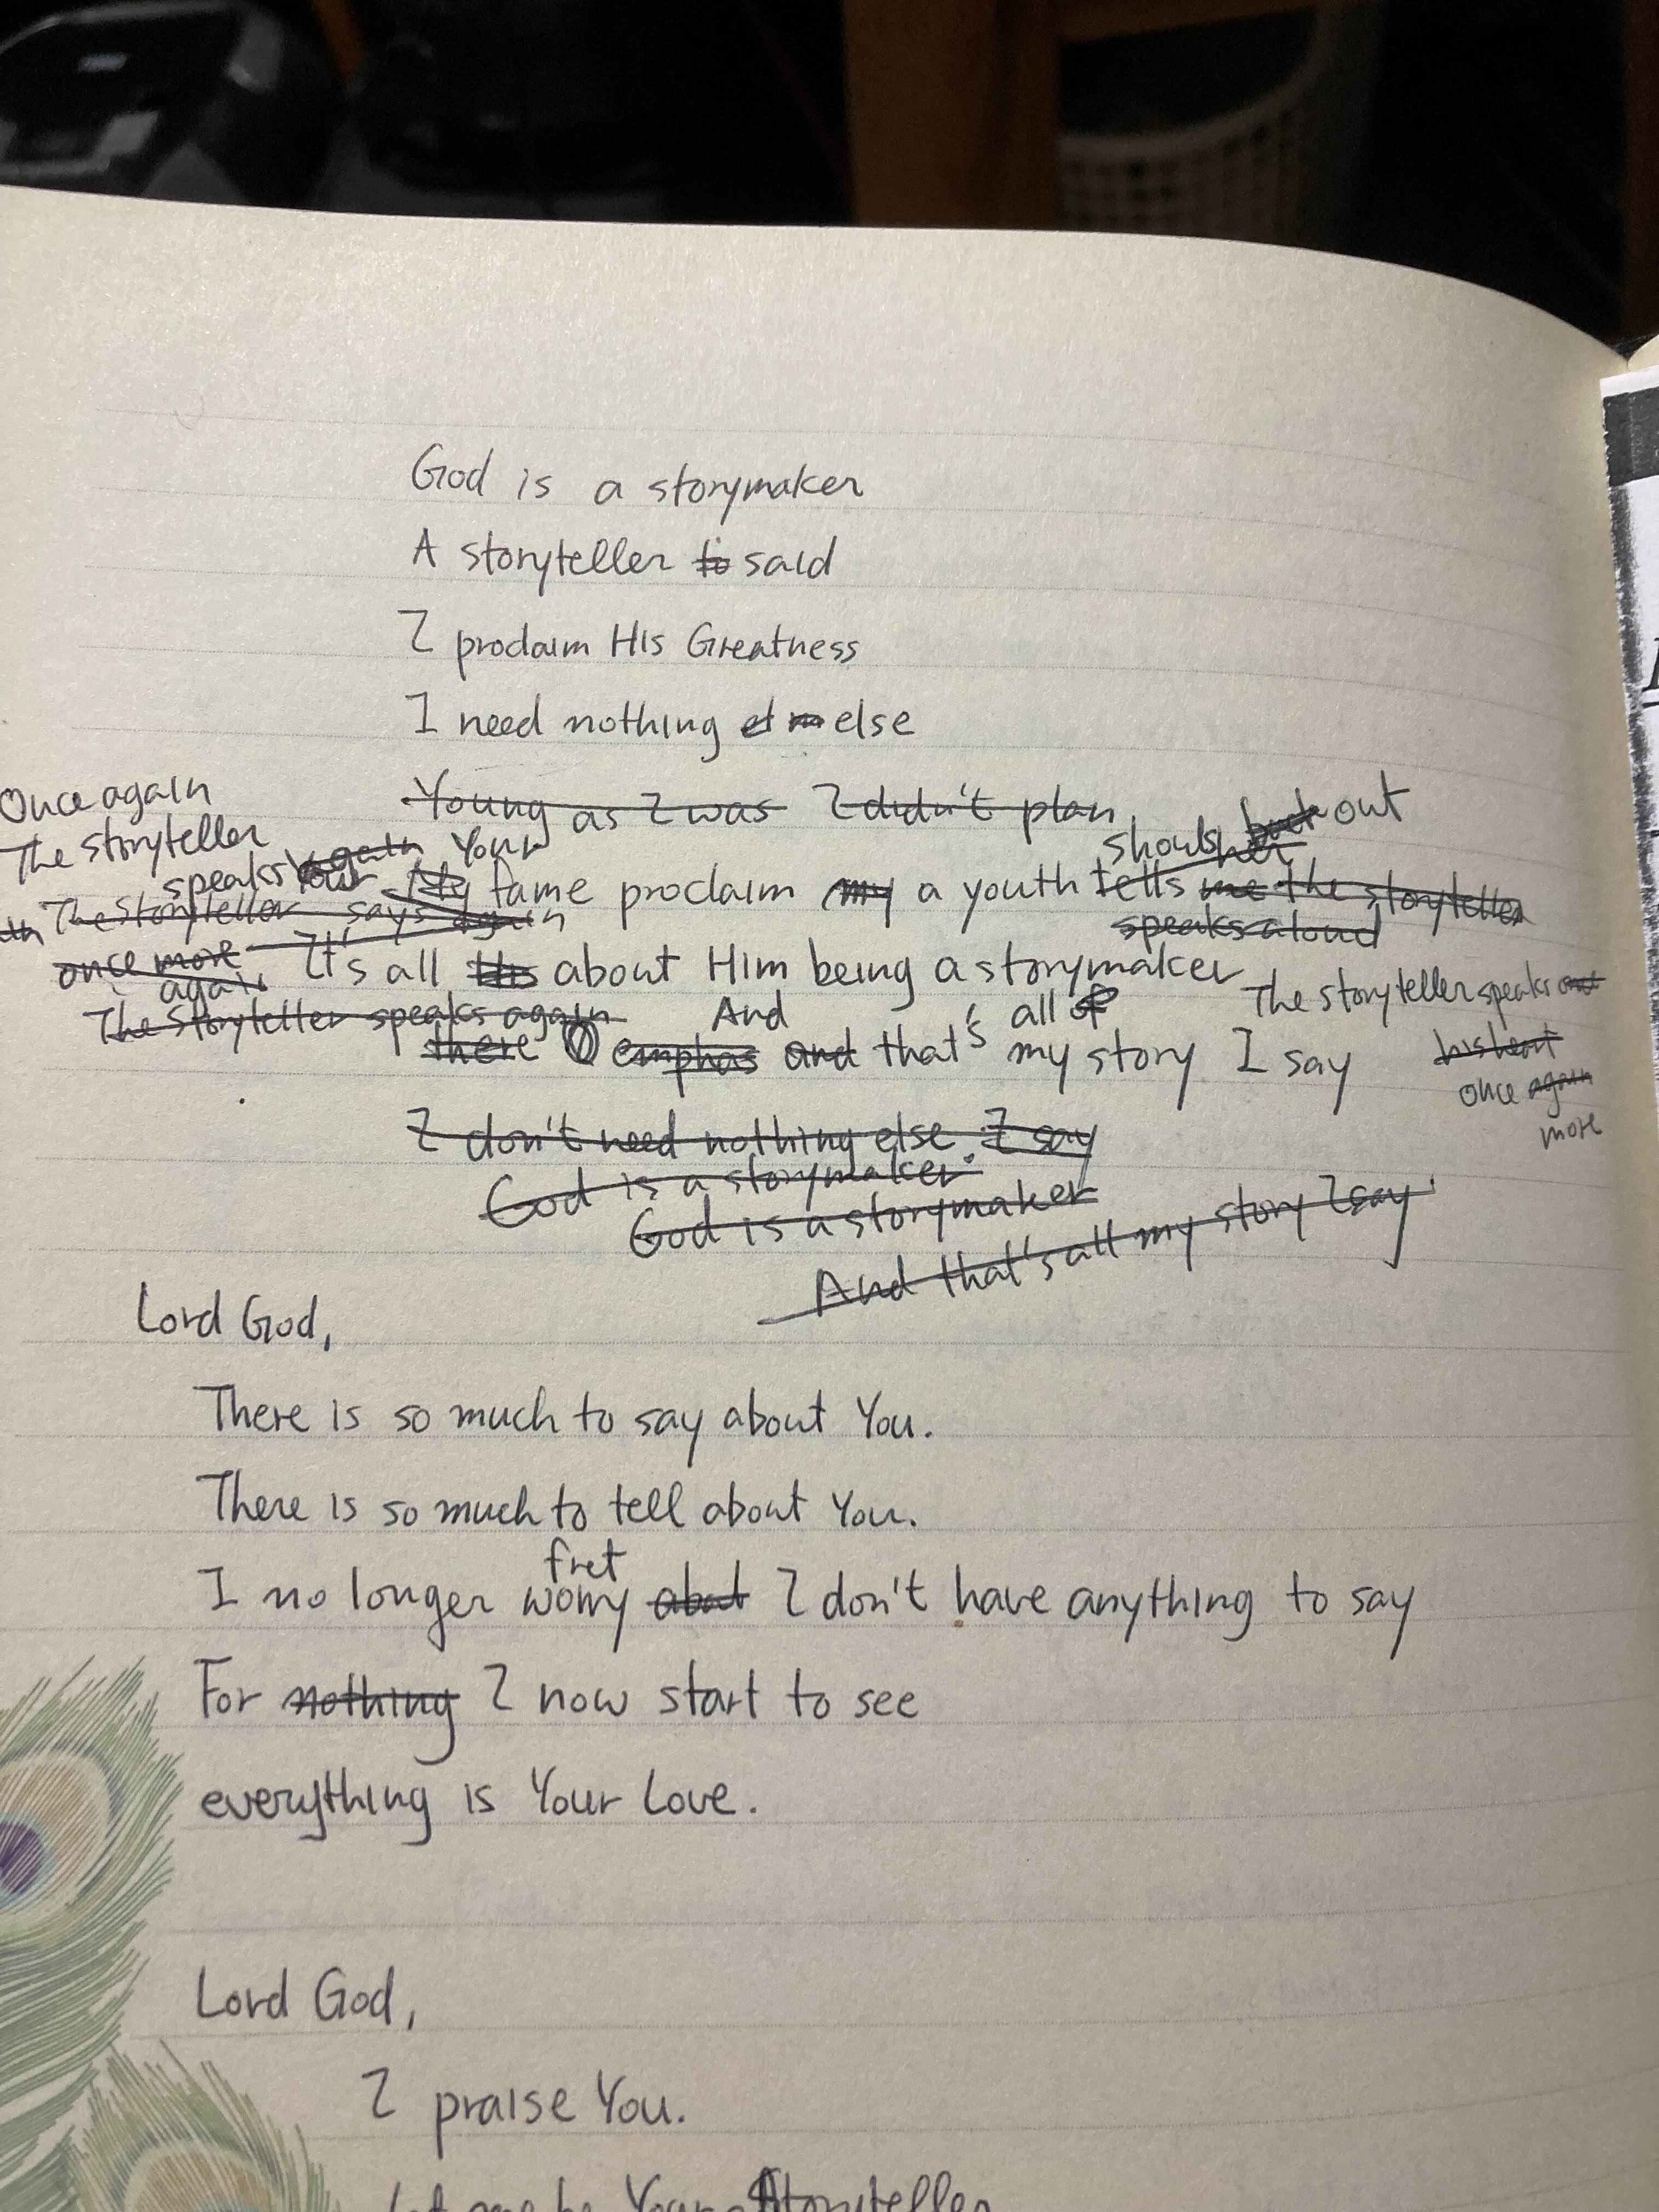 God is a storymaker
A storyteller to said
I proclaim His Greatness
I need nothing el m else
Young as I was I didn't plan
Once again
The storyteller
speaks again
Your
shouts her but out
My fame proclaim my a youth tells me the storyteller
The storyteller says again
speaks aloud
once more
again
It's all His about Him being a storymaker
The storyteller speaks again
And
all of
The storyteller speaks out
there emphas and that's my story I say
his heart
once again
more
I don't need nothing else. I say
God is a storymaker.
God is a storymaker
And that's all my story I say
Lord God,
There is so much to say about You.
There is so much to tell about You.
fret
I no longer worry about I don't have anything to say
For nothing I now start to see
everything is Your Love.
Lord God,
I praise You.
Let me be Your Storyteller